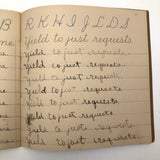 B R K H I J L D S
Yield to just requests
Yield to just requests.
Yield to just requests.
Yield to just requests.
Yield to just requests.
Yield to just requests.
Yield to just requests.
Yield to just requests.
Yield to just requests.